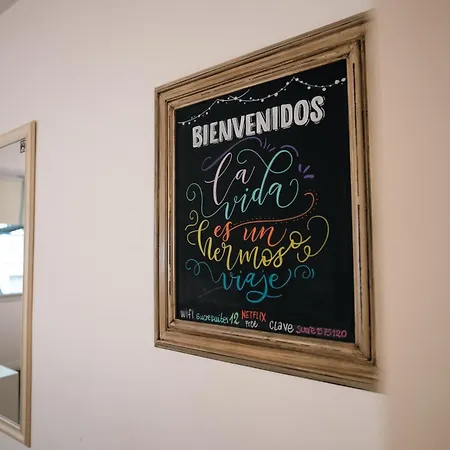 BIENVENIDOS
la
vida
es un
hermoso
viaje
wifi sucresuites12 NETFLIX FREE clave